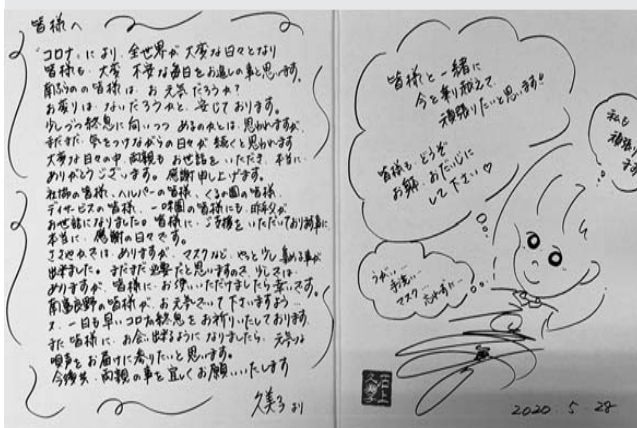 皆様へ
"コロナ"により、全世界が大変な日々となり
皆様も、大変不安な毎日をお過しの事と思います。
南ふらのの皆様は、お元気だろうか?
お変りはないだろうかと、案じております。
少しづつ終息に向いつつあるのかとは、思われますが、
まだまだ、気をつけながらの日々が続くと思われます
大変な日々の中、両親もお世話をいただき、本当に
ありがとうございます。感謝申し上げます。
社協の皆様、ヘルパーの皆様、くるの園の皆様
デイサービスの皆様、一味園の皆様にも、昨年父が
お世話になりました。皆様に、ご支援をいただいており
本当に、感謝の日々です。
ささやかでは、ありますが、マスクなど、やっと少し集める事が
出来ました。まだまだ必要だと思いますので、少しでは、
ありますが、皆様に、お使いいただけましたら幸いです。
南富良野の皆様が、お元気でいて下さいますよう…
又、一日も早いコロナの終息をお祈りいたしております。
また皆様に、お会い出来るようになりましたら、元気な
唄声をお届けに参りたいと思います。
今後共、両親の事を宜しくお願いいたします
久美子より
皆様と一緒に
今を乗り越えて、
頑張りたいと思います!!
皆様も、どうぞ
お躰、お大心に
して下さい♡
私も
頑張り
うがい…
手洗い…
マスク…忘れずに…
石上
久美子
2020.5.28